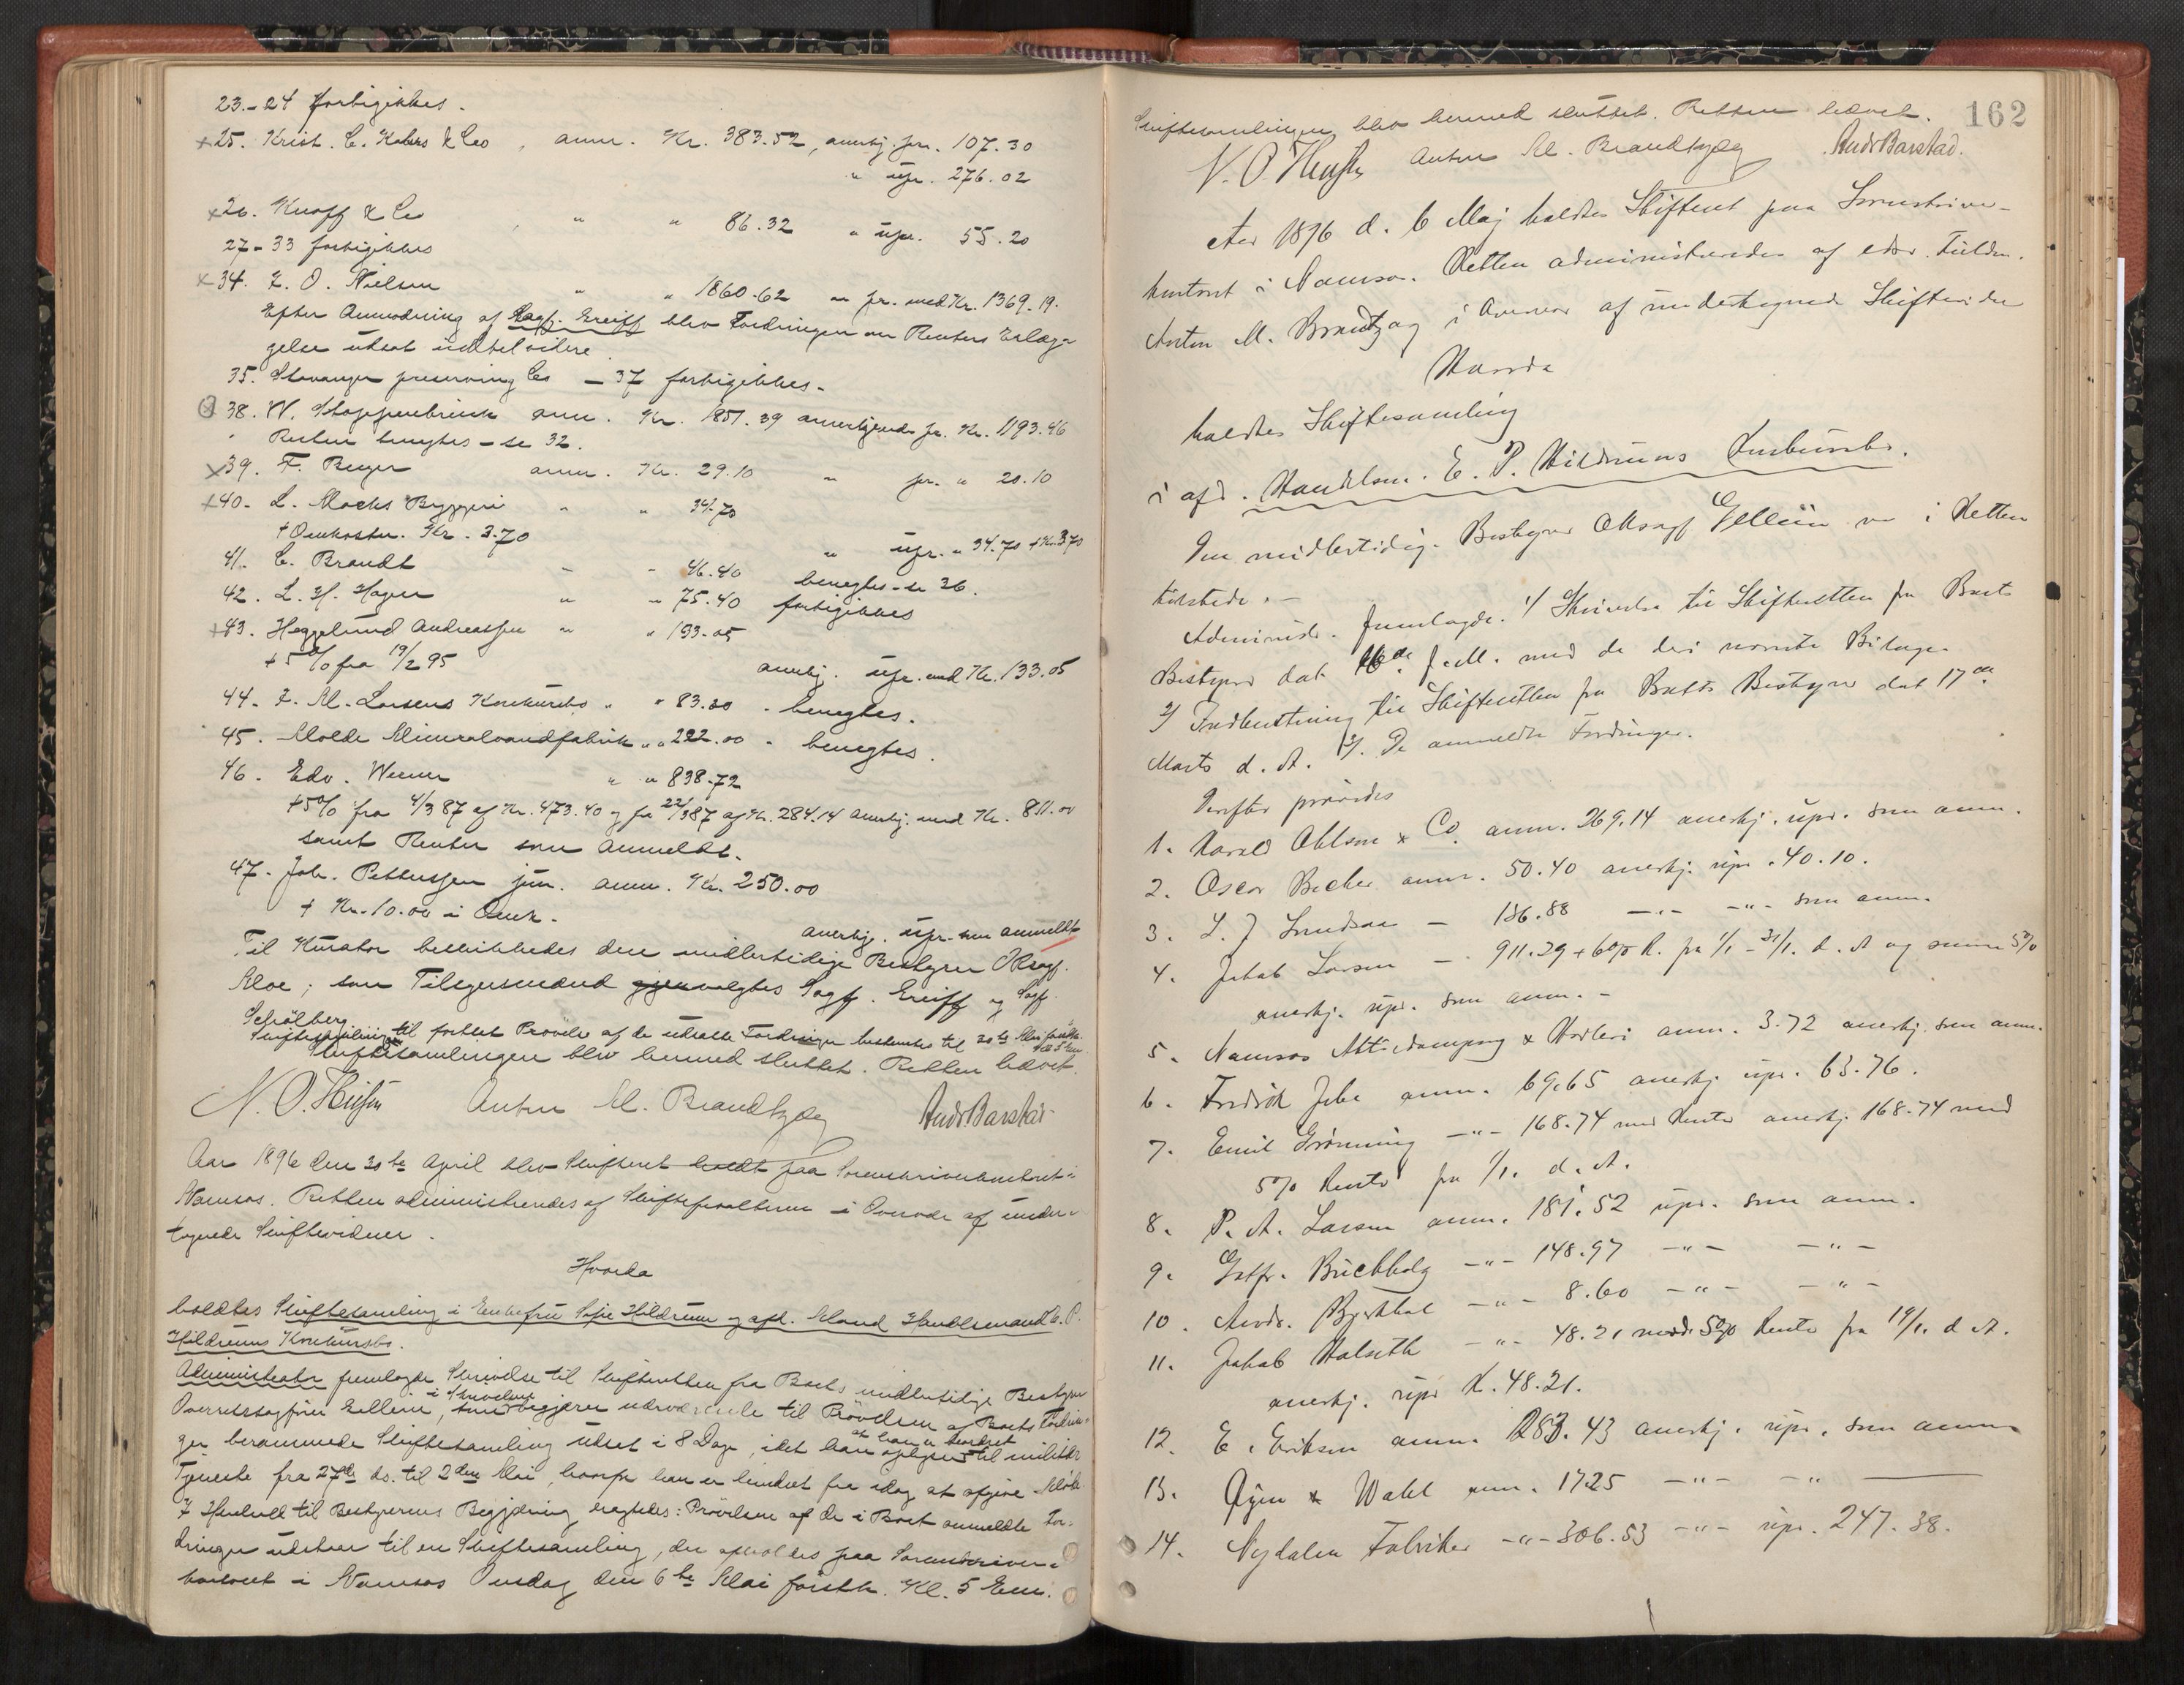 23.-24 forbigikkes.
+25. Krist. C. Kahrs & Co, anm. Kr. 383.52, anerkj. pr. 107.30
" upr. 276.02
+26. Knoff & Co " " 86.32 " upr. 55.20
27-33 forbigikkes
+34. L. O. Nielsen " " 1860.62 " pr. med Kr. 1369.19.
Efter Anmodning af Sagf. Greiff blev Fordringen om Renters Erlæg-
gelse udsat indtil videre.
35. Stavanger preserving Co - 37 forbigikkes.
38. W. Stoppenbrink anm. Kr. 1851.39 anerkjendes pr. Kr. 1193.46
Resten benegtes - se 32.
+39. F. Beyer anm. Kr. 29.10 " pr. " 20.10
+40. L. Macks Bryggeri " " 34.70
+ Omkoster. Kr. 3.70 " upr. " 34.70 + Kr. 3.70
41. C. Brandt " " 46.40 benegtes - se 36.
42. L. H. Hagen " " 75.40 forbigikkes
+43. Heggelund Andreassen " " 133.05
+ 5% fra 19/2 95 anerkj. upr. med Kr. 133.05
44. L. M. Larsens Konkursbo " " 83.20 - benegtes.
45. Molde Mineralvandfabrik " " 222.00 - benegtes.
46. Edv. Werner " " 838.72
+5% fra 4/3 87 af Kr. 473.40 og fra 22/3 87 af Kr. 284.14 anerkj. med Kr. 811.00
samt Renter som anmeldt.
47. Joh. Petterssen jun. anm. Kr. 250.00
+ Kr. 10.00 i Omk.
anerkj. upr. som anmeldt
Til Kurator beskikkedes den midlertidige Bestyrer ORsagf.
Moe; som Tilsynsmænd gjenvalgtes Sagf. Greiff og Sagf.
Schølberg.
Skiftesamling til fortsat Prøvelse af de udsatte Fordringer bestemtes til 20de Mai førstk.
Skiftesamlingen blev hermed sluttet. Retten hævet.
Anton M. Brandtzæg Andr Barstad
Aar 1896 den 30te April blev Skifteret holdt paa Sorenskriverkontoret i
Namsos. Retten administreredes af Skifteforvalteren i Overvær af under-
tegnede Skiftevidner.
Hvorda
holdtes Skiftesamling i Enkefru Hildrum og afd. Mand Handlsmand E. P.
Hildrums Konkursbo.
Administrator fremlagde Skrivelse til Skifteretten fra Boets midlertidige Bestyrer
Overretssagfører Gellein, i Skrivelsen begjærer nærværende til Prøvelsen af Boets Fordrin-
ger berammede Skiftesamling udsat i 8 Dage, idet han at han er beordret til militær
Tjeneste fra 27de ds. til 2den Mai, hvorfor han er hindret fra idag at afgive Møde.
I Henhold til Bestyrerens Begjæring eragtedes: Prøvelsen af de i Boet anmeldte For-
dringer udstaar til en Skiftesamling, der afholdes paa Sorenskriver-
kontoret i Namsos Onsdag den 6te Mai førstk. Kl. 5 Em.
162
Skiftesamlingen blev hermed sluttet. Retten hævet.
Anton M. Brandtzæg Andr Barstad.
Aar 1896 d. 6 Maj holdtes Skifteret paa Sorenskriver-
kontoret i Namsos. Retten administreredes af edsv. Fuldm.
Anton M. Brandtzæg i Overvær af undertegnede Skiftevidner
Hvorda
holdtes Skiftesamling
i afd. Handelsm. E. P. Hildrums Konkursbo.
Den midlertidige Bestyrer ORsagf Gellein var i Retten
tilstede. -
Administr. fremlagde. 1/ Skrivelse til Skifteretten fra Boets
Bestyrer dat. 16de f. M. med de deri nævnte Bilage.
2/ Indberetning til Skifteretten fra Boets Bestyrer dat 17de
Marts d. A. 3/. De anmeldte Fordringer.
Derefter prøvedes
1. Harald Ohlson & Co. anm. 269.14 anerkj. upr. som anm.
2. Oscar Becker anm. 50.40 anerkj. upr. 40.10.
3. L. J. - 136.88 -"- -"- som anm.
4. Jakob Larsen - 911.29 + 6% R. fra 1/1 - 31/1. d. A og senere 5%
anerkj. upr. som anm. -
5. Namsos Aktiedampsag & Høvleri anm. 3.72 anerkj. som anm.
6. Fredrik Jebe anm. 69.65 anerkj. upr. 63.76.
7. Emil Grønning -"- 168.74 med Renter anerkj. 168.74 med
5% Rente fra 1/1. d. A.
8. P. A. Larsen anm. 181.52 upr. som anm.
9. Gotfr. Buchholz -"- 148.97 -"- -"-
10. Andr. -"- 8.60 -"- -"-
11. Jakob Halseth -"- 48.21 med 5% Rente fra 19/1. d A.
anerkj. upr K. 48.21.
12. E. Eriksen anm. 253.43 anerkj. upr. som anm.
13. Øyen & Wahl anm. 17.25 -"- -"-
14. Nydalen Fabriker -"- 306.53 -"- upr. 247.38.